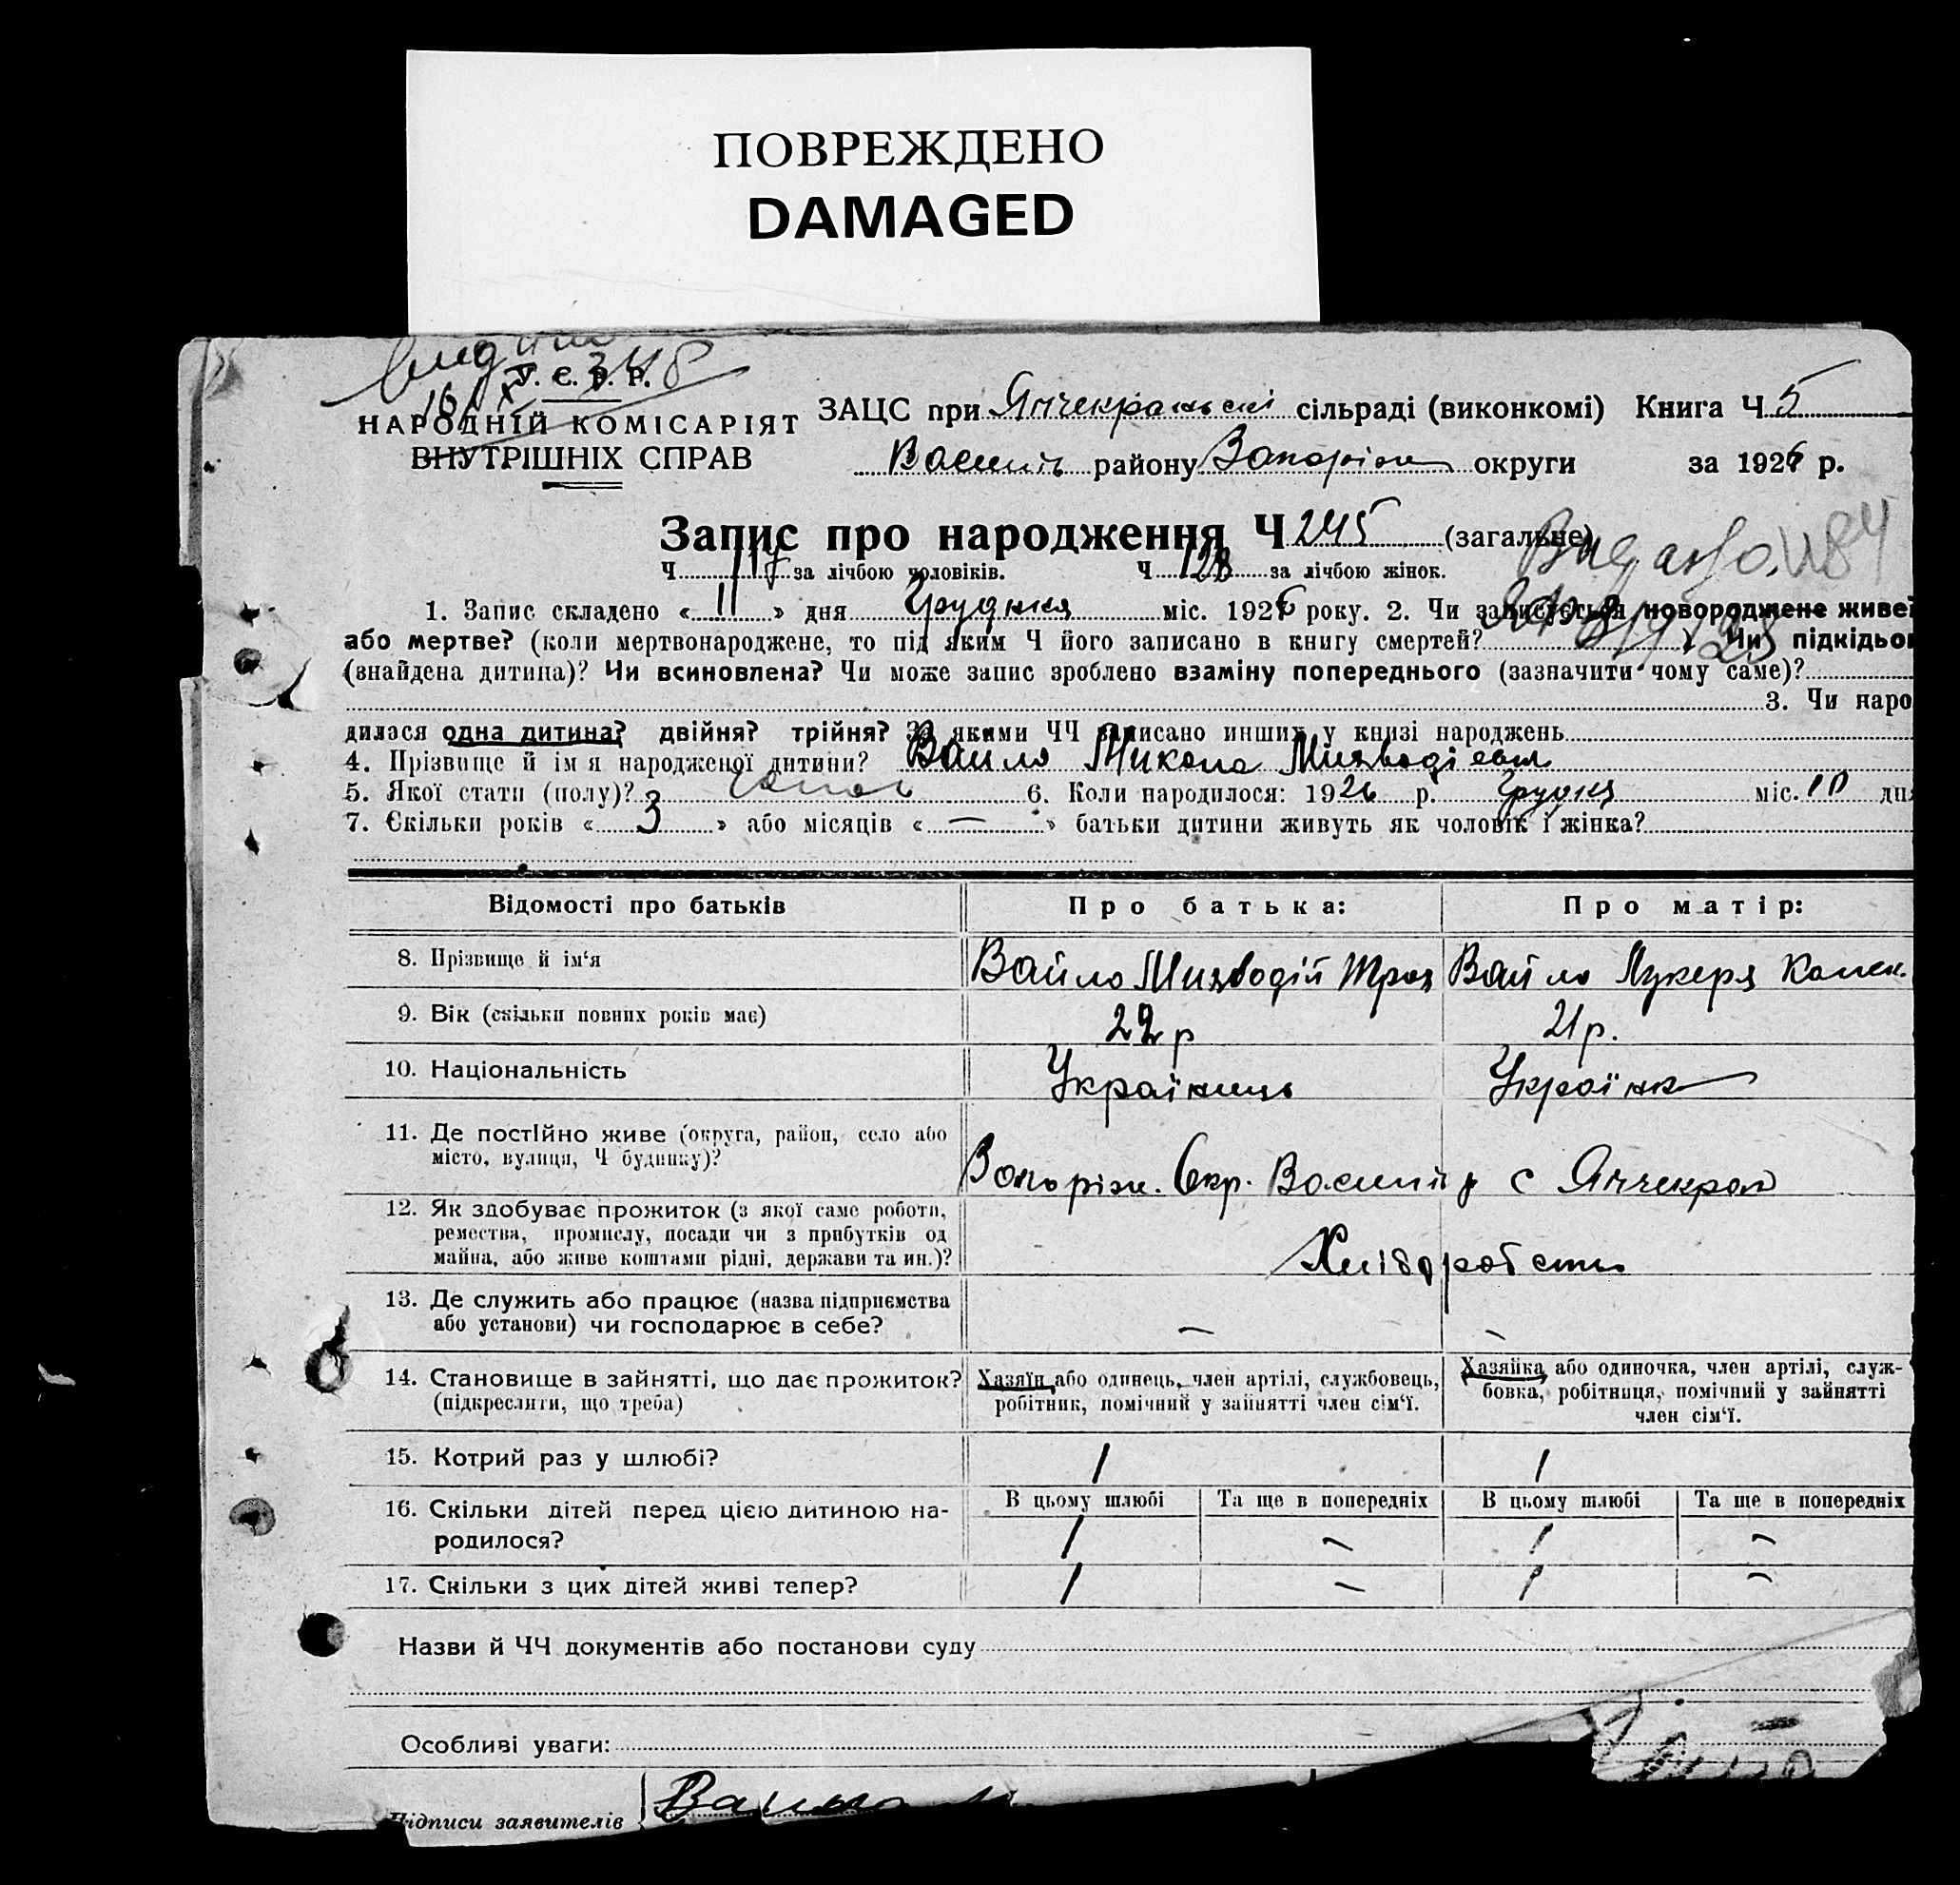 ПОВРЕЖДЕНО
DAMAGED
У. С. Р. Р.
НАРОДНІЙ КОМІСАРІЯТ
ВНУТРІШНІХ СПРАВ
ЗАЦС при Янчекракські сільраді (виконкомі) Книга Ч 5
району округи за 1926 р.
Запис про народження Ч 245 (загальне)
Ч 117 за лічбою чоловіків. Ч 128 за лічбою жінок.
1. Запис складено « 11 » дня Грудня міс. 1926 року. 2. Чи записується новороджене живе
або мертве? (коли мертвонароджене, то під яким Ч його записано в книгу смертей? ) Чи підкідьок
(знайдена дитина)? Чи всиновлена? Чи може запис зроблено взаміну попереднього (зазначити чому саме)?
3. Чи наро
дилася одна дитина? двійня? трійня? За якими ЧЧ записано инших у книзі народжень
4. Прізвище й імя народженої дитини? Вайло Микола
5. Якої стати (полу)? 6. Коли народилося: 1926 р. Грудня міс. 10 дня
7. Скільки років « 3 » або місяців « — » батьки дитини живуть як чоловік і жінка?
Відомості про батьків
Про батька:
Про матір:
8. Прізвище й ім‘я
Вайло
Вайло Лукеря
9. Вік (скільки повних років має)
22 р
21 р.
10. Національність
Українець
Українк
11. Де постійно живе (округа, район, село або
місто, вулиця, Ч будинку)?
Запоріж. Окр. с Янчекрак
12. Як здобуває прожиток (з якої саме роботи,
ремества, промислу, посади чи з прибутків од
майна, або живе коштами рідні, держави та ин.)?
Хліборобство
13. Де служить або працює (назва підприємства
або установи) чи господарює в себе?
—
—
14. Становище в зайнятті, що дає прожиток?
(підкреслити, що треба)
Хазяїн або одинець, член артілі, службовець,
робітник, помічний у зайнятті член сім‘ї.
Хазяйка або одиночка, член артілі, служ-
бовка, робітниця, помічний у зайнятті
член сім‘ї.
15. Котрий раз у шлюбі?
1
1
16. Скільки дітей перед цією дитиною на-
родилося?
В цьому шлюбі
Та ще в попередніх
В цьому шлюбі
Та ще в попередніх
1
—
1
—
17. Скільки з цих дітей живі тепер?
1
—
1
—
Назви й ЧЧ документів або постанови суду
Особливі уваги:
Підписи заявителів